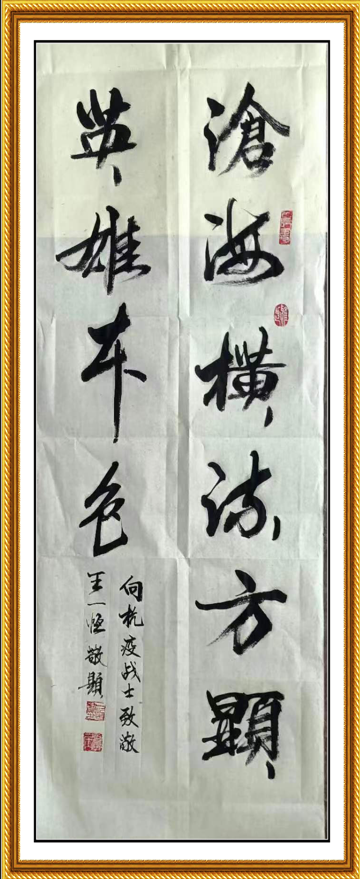 滄海橫流方顯
英雄本色
向抗疫战士致敬
王一恒敬題